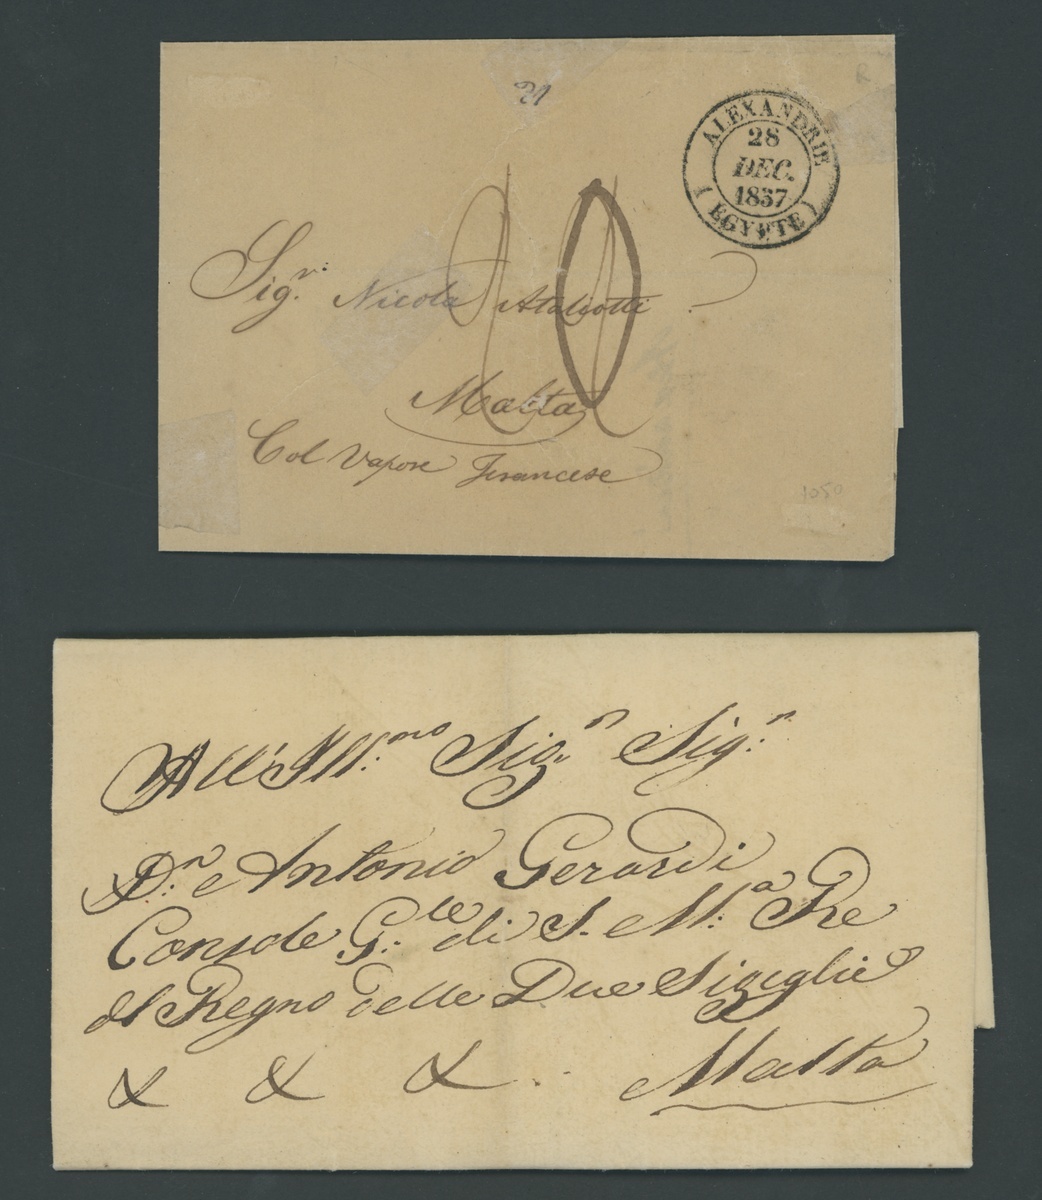 R
ALEXANDRIE
28
DEC.
1837
(EGYPTE)
Sig.r: Nicola
Malta
Col Vapore Francese
1050
All'Ill.mo Sig.r Sig.r
D.n e Antonio Gerardi
Console G.le di S. M.a Re
del Regno delle Due Sigiglie
& & & . . Malta